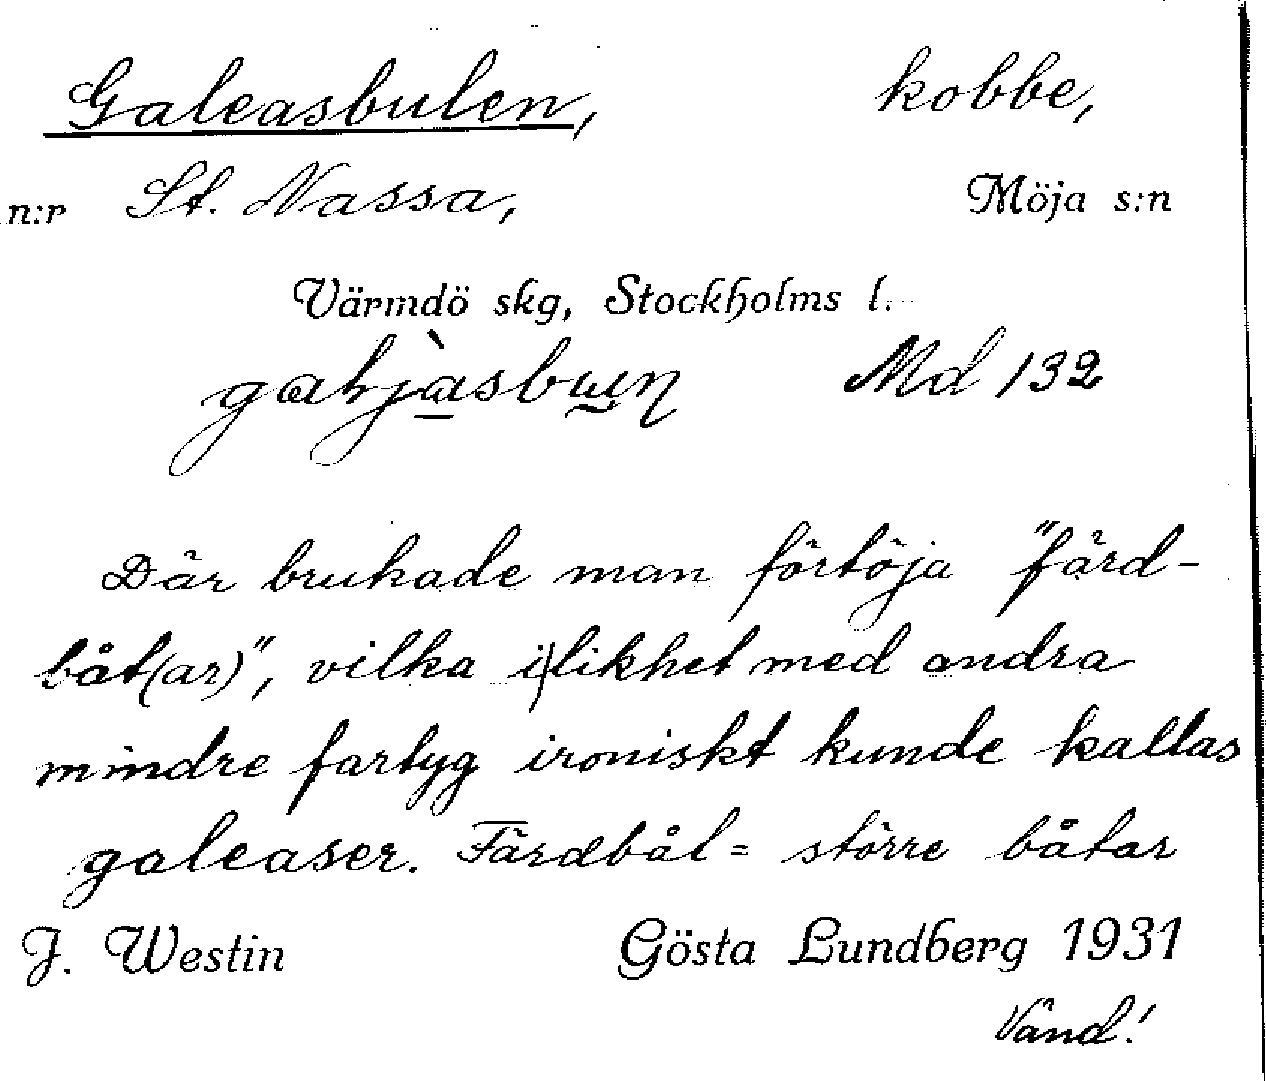 Galeasbulen, kobbe,
n:r St. Nassa, Möja s:n
Värmdö skg, Stockholms l.
Md 132
Där brukade man förtöja "färd-
båt(ar)", vilka i likhet med andra
mindre fartyg ironiskt kunde kallas
galeaser. Färdbåt = större båtar
J. Westin Gösta Lundberg 1931
Vänd!